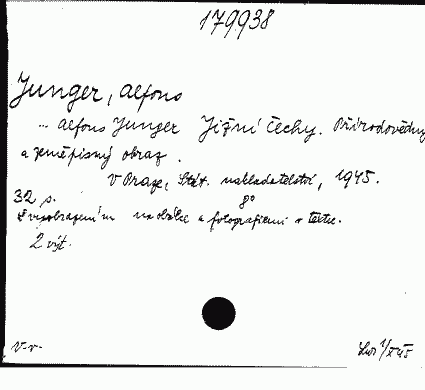 179938
Junger, Alfons
... Alfons Junger Jižní Čechy. Přírodovědný
a zeměpisný obraz.
V Praze, Stát. nakladatelství, 1945.
32 s. 8°
S vyobrazením na obálce a fotografiemi v textu.
2 výt.
V-v-